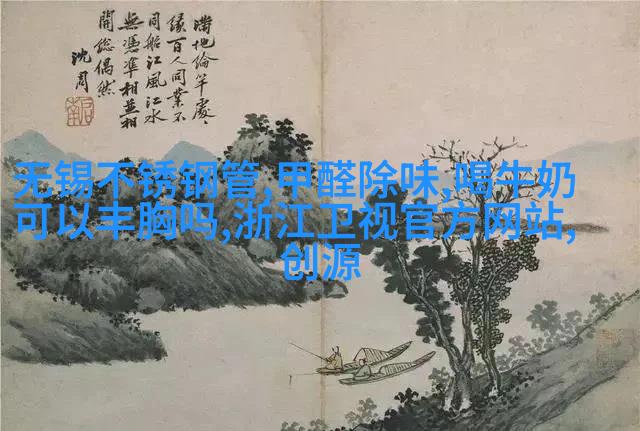 滿地綸竿處〻
緣百人同業不
同船江風江水
無憑準相並相
開總偶然
沈周
无锡不锈钢管,甲醛除味,喝牛奶
可以丰胸吗,浙江卫视官方网站,
创源